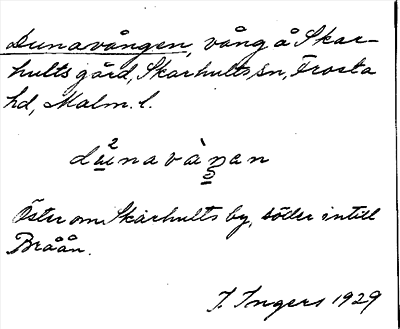 Dunavången, vång å Skar-
hults gård, Skarhults sn, Frosta
hd, Malm. l.
Öster om Skarhults by, söder intill
Braån.
I. Ingers 1929